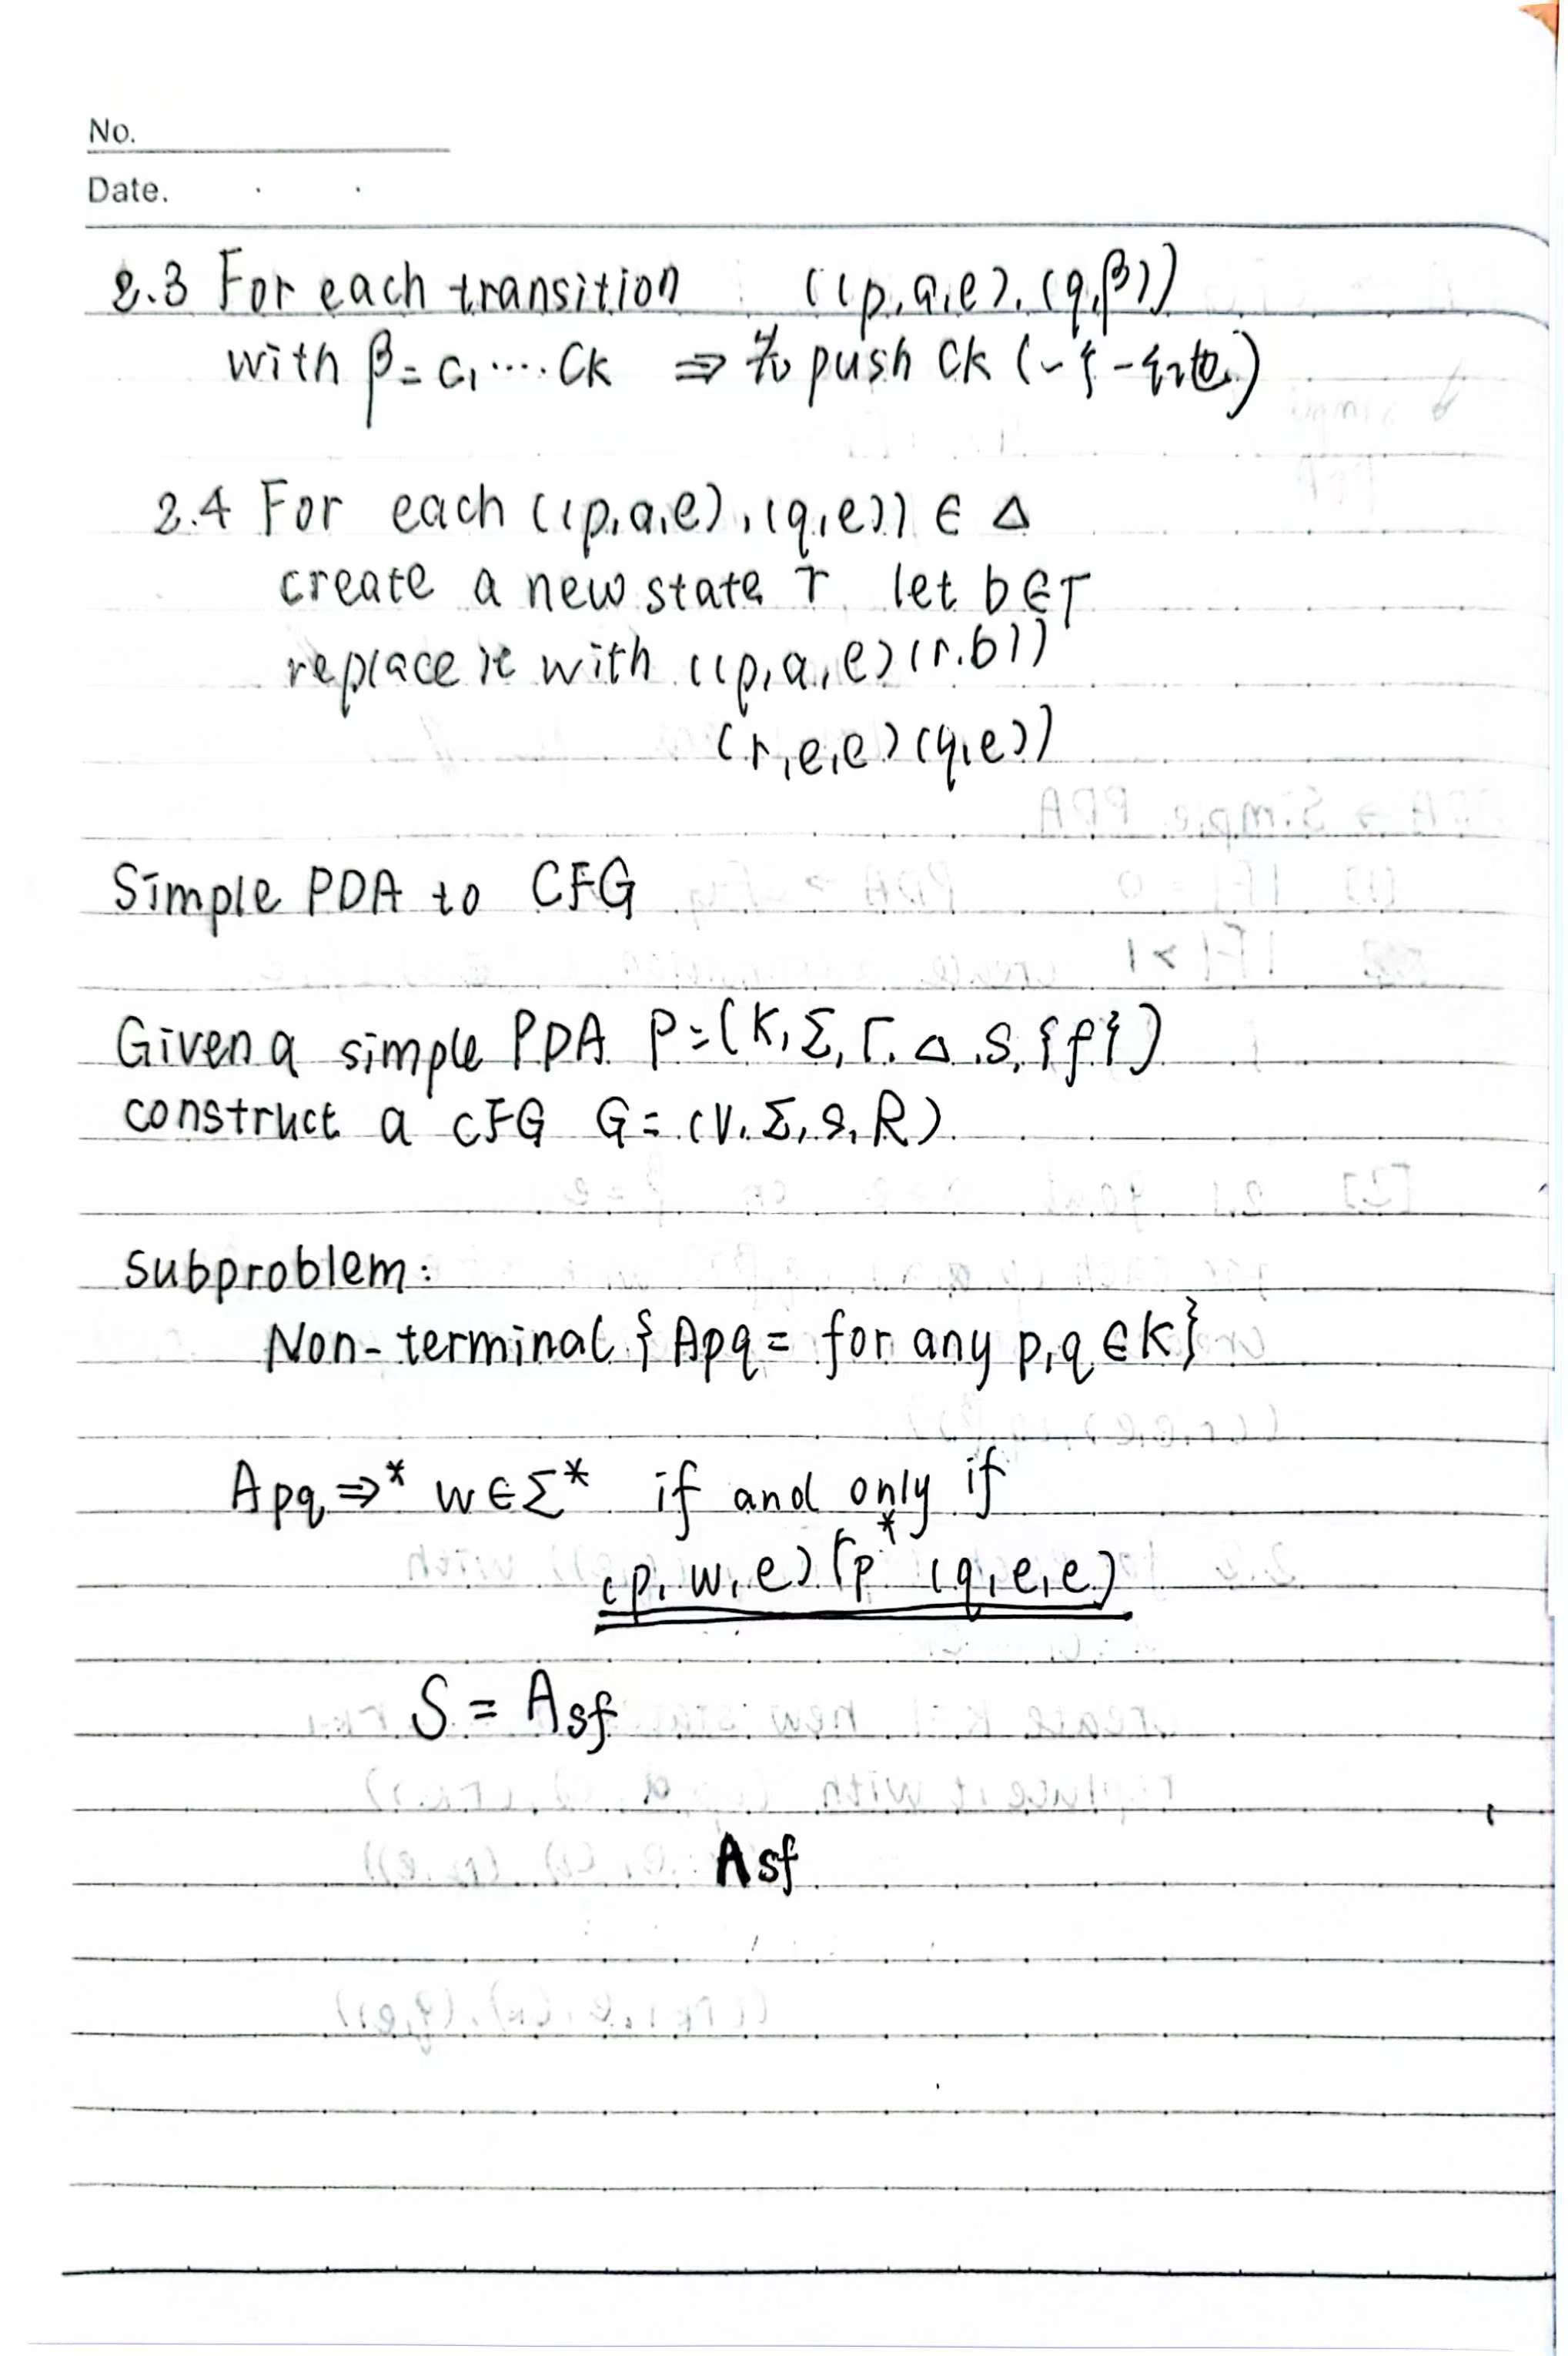 No.
Date.
2.3 For each transition ((p,a,e),(q,β))
with β=c1····Ck ⇒ 先push Ck (一个一个地)
2.4 For each ((p,a,e),(q,e)) ∈ Δ
create a new state r let b∈Γ
replace it with ((p,a,e)(r,b))
(r,e,e)(q,e))
Simple PDA to CFG
Given a simple PDA P=(K,Σ,Γ,Δ,S,{f})
construct a CFG G=(V,Σ,S,R)
subproblem:
Non-terminal {Apq = for any p,q∈K}
Apq ⇒* w∈Σ* if and only if
(p,w,e)⊢p* (q,e,e)
S = Asf
Asf